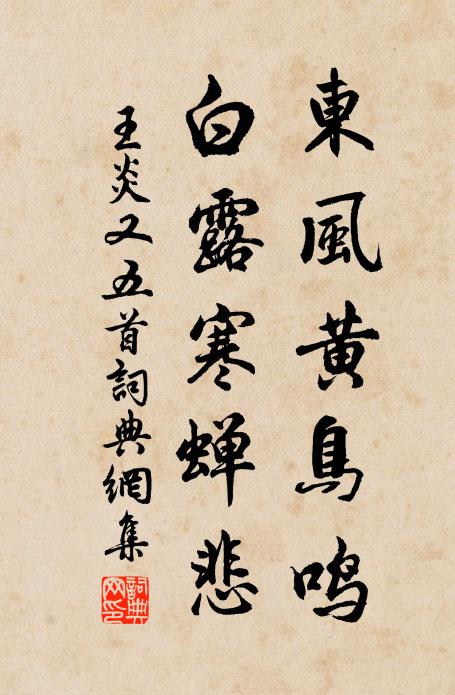 東風黄鳥鳴
白露寒蝉悲
王炎又五首詞典網集
詞典網印